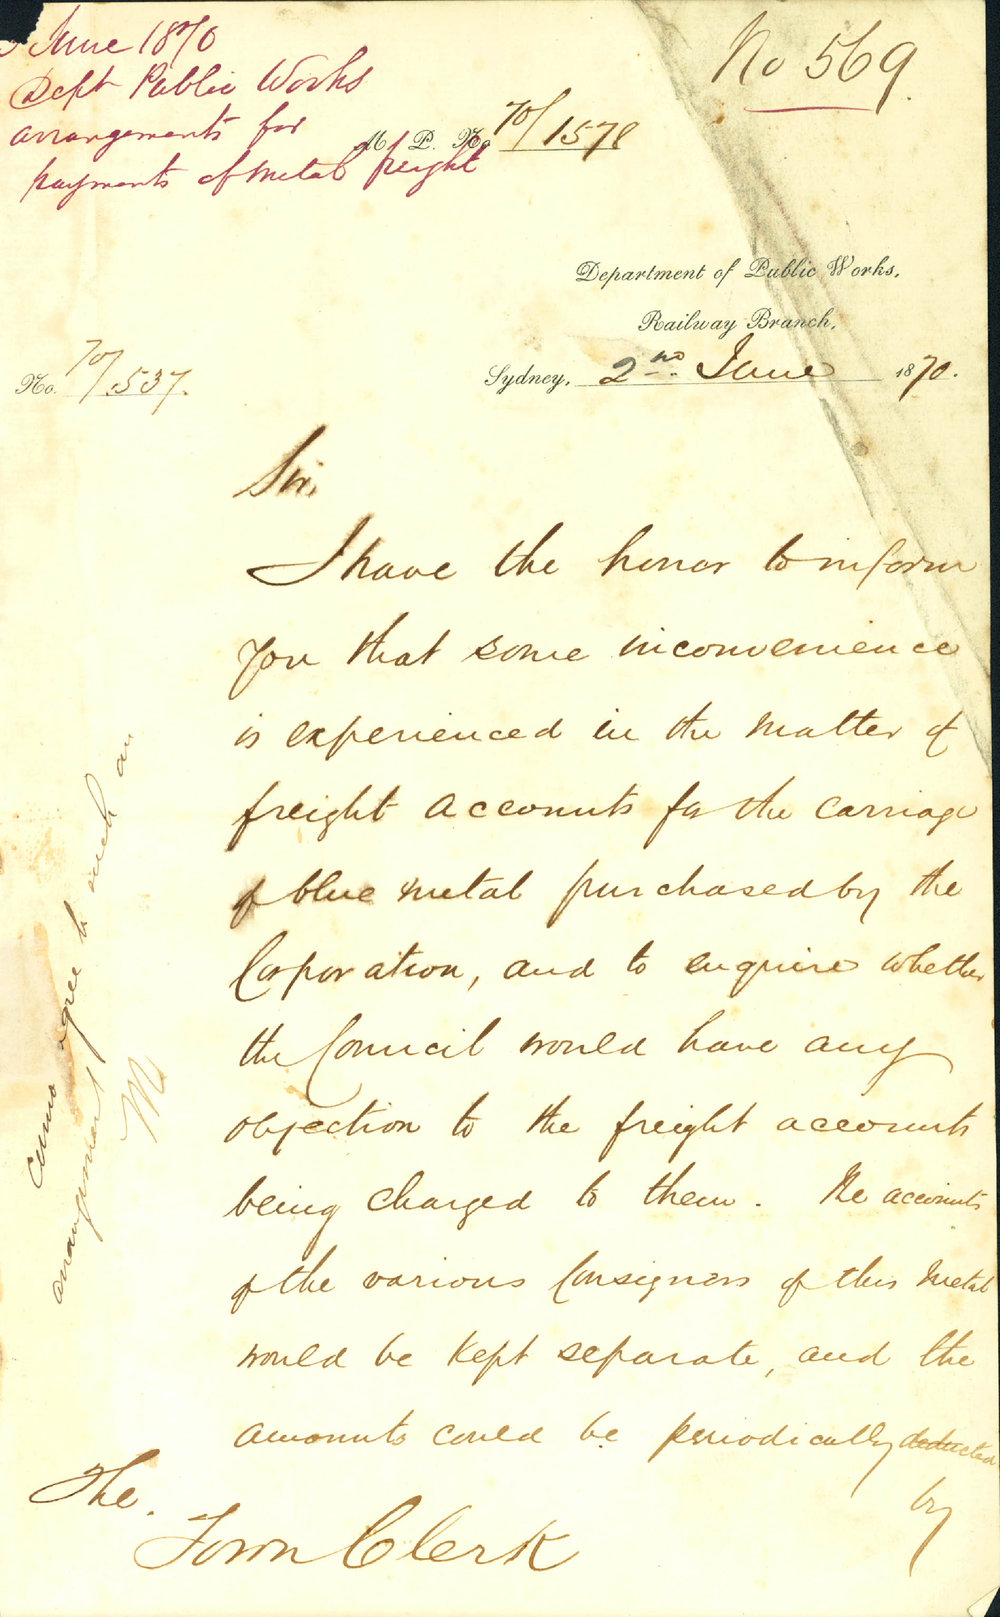 June 1870
Dept Public Works
arrangements for
payments of metal freight
No 569.
M. P. No 70/1578
Department of Public Works,
Railway Branch,
No. 70/537.
Sydney, 2nd June 1870.
Sir,
I have the honor to inform
you that some inconvenience
is experienced in the matter of
freight accounts for the carriage
of blue metal purchased by the
Corporation, and to enquire whether
the Council would have any
objection to the freight accounts
being charged to them. The accounts
of the various Consignors of this metal
would be kept separate, and the
amounts could be periodically deducted
by
The
Town Clerk
agree to such an
arrangement
M